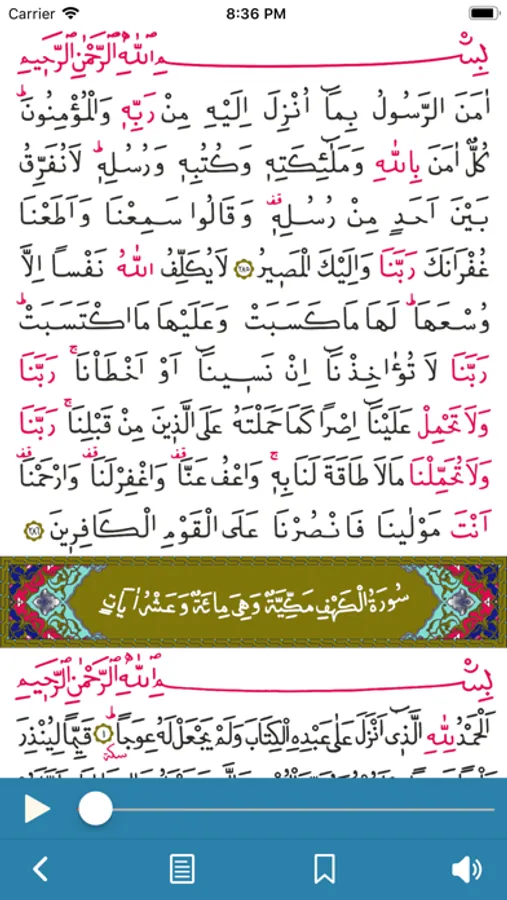 Carrier 8:36 PM
بِسْمِ اللهِ الرَّحْمٰنِ الرَّحِيمِ
اٰمَنَ الرَّسُولُ بِمَٓا اُنْزِلَ اِلَيْهِ مِنْ رَبِّهٖ وَالْمُؤْمِنُونَۜ
كُلٌّ اٰمَنَ بِاللهِ وَمَلٰٓئِكَتِهٖ وَكُتُبِهٖ وَرُسُلِهٖۜ لَانُفَرِّقُ
بَيْنَ اَحَدٍ مِنْ رُسُلِهٖ۠ وَقَالُوا سَمِعْنَا وَاَطَعْنَا
غُفْرَانَكَ رَبَّنَا وَاِلَيْكَ الْمَصٖيرُ ﴿٢٨٥﴾ لَايُكَلِّفُ اللهُ نَفْساً اِلَّا
وُسْعَهَاۜ لَهَا مَاكَسَبَتْ وَعَلَيْهَا مَااكْتَسَبَتْۜ
رَبَّنَا لَا تُؤَاخِذْنَٓا اِنْ نَسٖينَٓا اَوْ اَخْطَاْنَاۚ رَبَّنَا
وَلَاتَحْمِلْ عَلَيْنَٓا اِصْراً كَمَاحَمَلْتَهُ عَلَى الَّذٖينَ مِنْ قَبْلِنَاۚ رَبَّنَا
وَلَاتُحَمِّلْنَا مَالَا طَاقَةَ لَنَابِهٖۚ وَاعْفُ عَنَّا۠ وَاغْفِرْلَنَا۠ وَارْحَمْنَا۠
اَنْتَ مَوْلٰينَا فَانْصُرْنَا عَلَى الْقَوْمِ الْكَافِرٖينَ ﴿٢٨٦﴾
سُورَةُ الْكَهْفِ مَكِّيَّةٌ وَهِيَ مِائَةٌ وَعَشْرُ اٰيَاتٍ
بِسْمِ اللهِ الرَّحْمٰنِ الرَّحِيمِ
اَلْحَمْدُ لِلّٰهِ الَّذٖٓى اَنْزَلَ عَلٰى عَبْدِهِ الْكِتَابَ وَلَمْ يَجْعَلْ لَهُ عِوَجاًۜ ﴿١﴾ قَيِّماً لِيُنْذِرَ
سكته